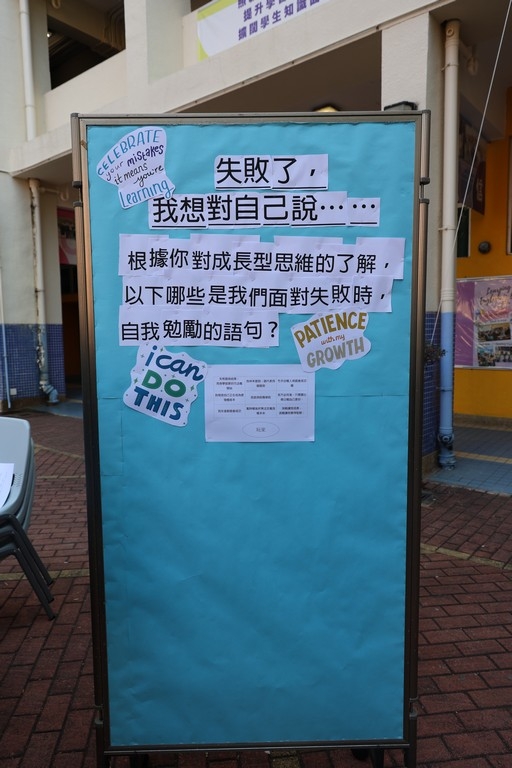 提升學
擴闊學生知識
CELEBRATE
your mistakes
it means
you're
Learning
失敗了，
我想對自己說⋯⋯
根據你對成長型思維的了解，
以下哪些是我們面對失敗時，
自我勉勵的語句？
PATIENCE
with my
GROWTH
i can
DO
THIS